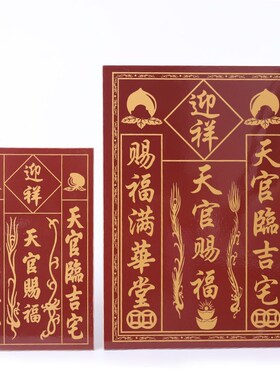 迎祥
天官臨吉宅
天官賜福
迎祥
天官臨吉宅
天官賜福
賜福滿華堂